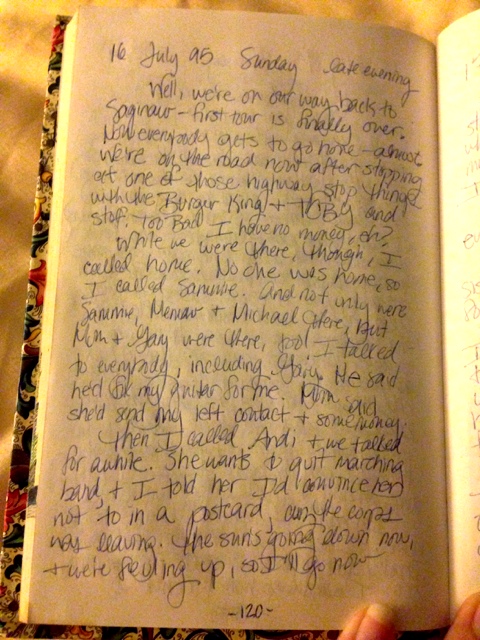 16 July 95 Sunday late evening
Well, we're on our way back to
Saginaw - first tour is finally over.
Now everybody gets to go home - almost
We're on the road now after stopping
at one of those highway stop things
with the Burger King + TCBY and
stuff. Too Bad I have no money, eh?
While we were there, though, I
called home. No one was home, so
I called Sammie. And not only were
Sammie, Memaw + Michael there, but
Mom + Gary were there, too! I talked
to everybody, including Gary. He said
he'd fix my guitar for me. Mom said
she'd send my left contact + some money.
Then I called Andi + we talked
for awhile. She wants to quit marching
band, + I told her I'd convince her
not to in a postcard, cuz the corps
was leaving. The sun's going down now,
+ we're fueling up, so I'll go now
-120-